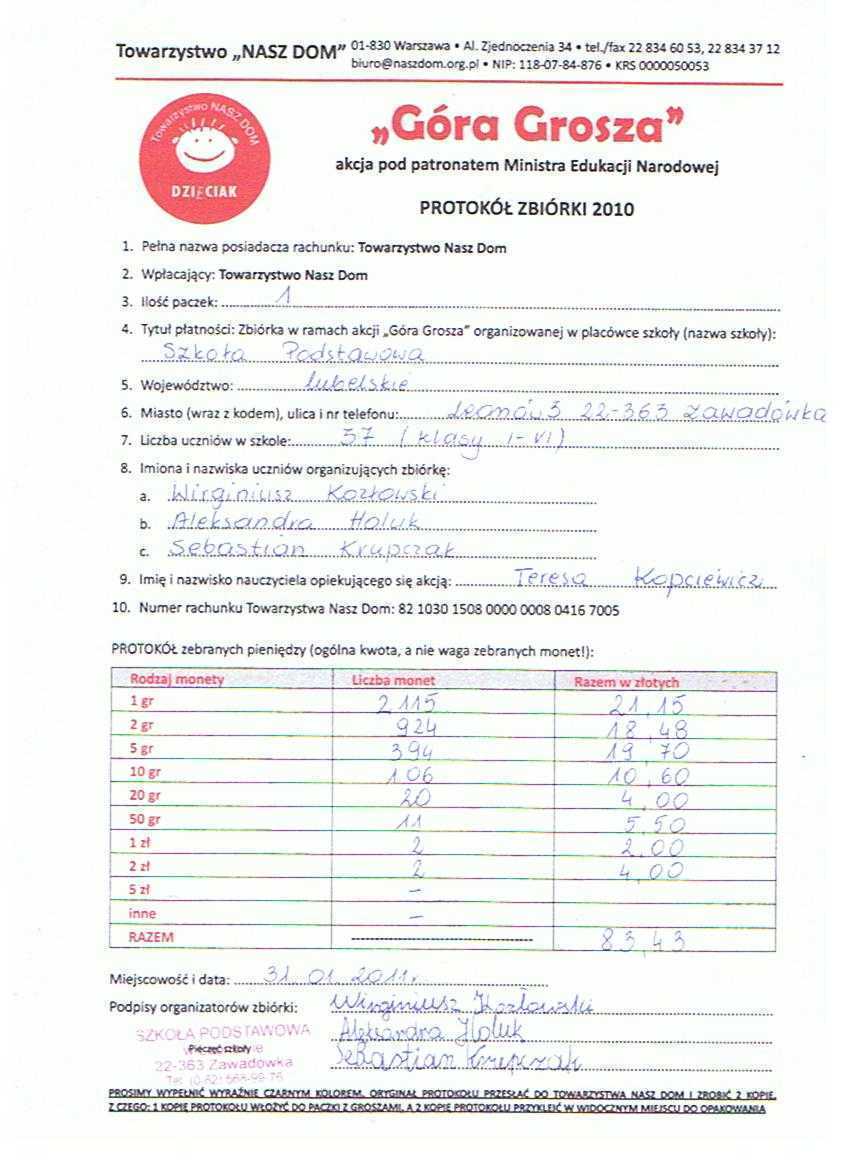 Towarzystwo „NASZ DOM” 01-830 Warszawa • Al. Zjednoczenia 34 • tel./fax 22 834 60 53, 22 834 37 12
biuro@naszdom.org.pl • NIP: 118-07-84-876 • KRS 0000050053
Towarzystwo NASZ DOM
DZIĘCIAK
„Góra Grosza”
akcja pod patronatem Ministra Edukacji Narodowej
PROTOKÓŁ ZBIÓRKI 2010
1. Pełna nazwa posiadacza rachunku: Towarzystwo Nasz Dom
2. Wpłacający: Towarzystwo Nasz Dom
3. Ilość paczek: 1
4. Tytuł płatności: Zbiórka w ramach akcji „Góra Grosza” organizowanej w placówce szkoły (nazwa szkoły):
Szkoła Podstawowa
5. Województwo: lubelskie
6. Miasto (wraz z kodem), ulica i nr telefonu: 22-363 Zawadówka
7. Liczba uczniów w szkole: 57 (klasy I-VI)
8. Imiona i nazwiska uczniów organizujących zbiórkę:
a. Wirginiusz Kozłowski
b. Aleksandra Holuk
c. Sebastian Krupczak
9. Imię i nazwisko nauczyciela opiekującego się akcją: Teresa Kapciewicz
10. Numer rachunku Towarzystwa Nasz Dom: 82 1030 1508 0000 0008 0416 7005
PROTOKÓŁ zebranych pieniędzy (ogólna kwota, a nie waga zebranych monet!):
Rodzaj monety Liczba monet Razem w złotych
1 gr 2115 21,15
2 gr 924 18,48
5 gr 394 19,70
10 gr 106 10,60
20 gr 20 4,00
50 gr 11 5,50
1 zł 2 2,00
2 zł 2 4,00
5 zł –
inne –
RAZEM ---------------------------------- 83,43
Miejscowość i data: 31 01 2011r.
Podpisy organizatorów zbiórki: Wirginiusz Kozłowski
SZKOŁA PODSTAWOWA Aleksandra Holuk
Pieczęć szkoły Sebastian Krupczak
22-363 Zawadówka
PROSIMY WYPEŁNIĆ WYRAŹNIE CZARNYM KOLOREM. ORYGINAŁ PROTOKOŁU PRZESŁAĆ DO TOWARZYSTWA NASZ DOM I ZROBIĆ 2 KOPIE.
Z CZEGO: 1 KOPIĘ PROTOKOŁU WŁOŻYĆ DO PACZKI Z GROSZAMI, A 2 KOPIĘ PROTOKOŁU PRZYKLEIĆ W WIDOCZNYM MIEJSCU DO OPAKOWANIA